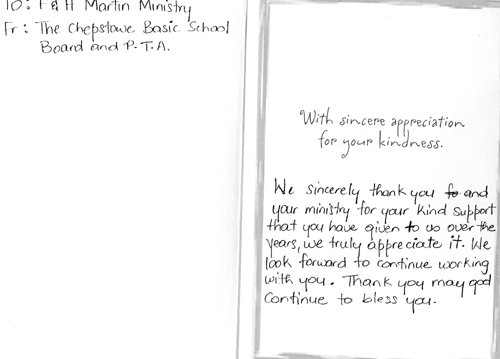 To: F & H Martin Ministry
Fr: The Chepstowe Basic School
Board and P.T.A.
With sincere appreciation
for your kindness.
We sincerely thank you fo and
your ministry for your kind support
that you have given to us over the
years, we truly appreciate it. We
look forward to continue working
with you. Thank you may god
continue to bless you.